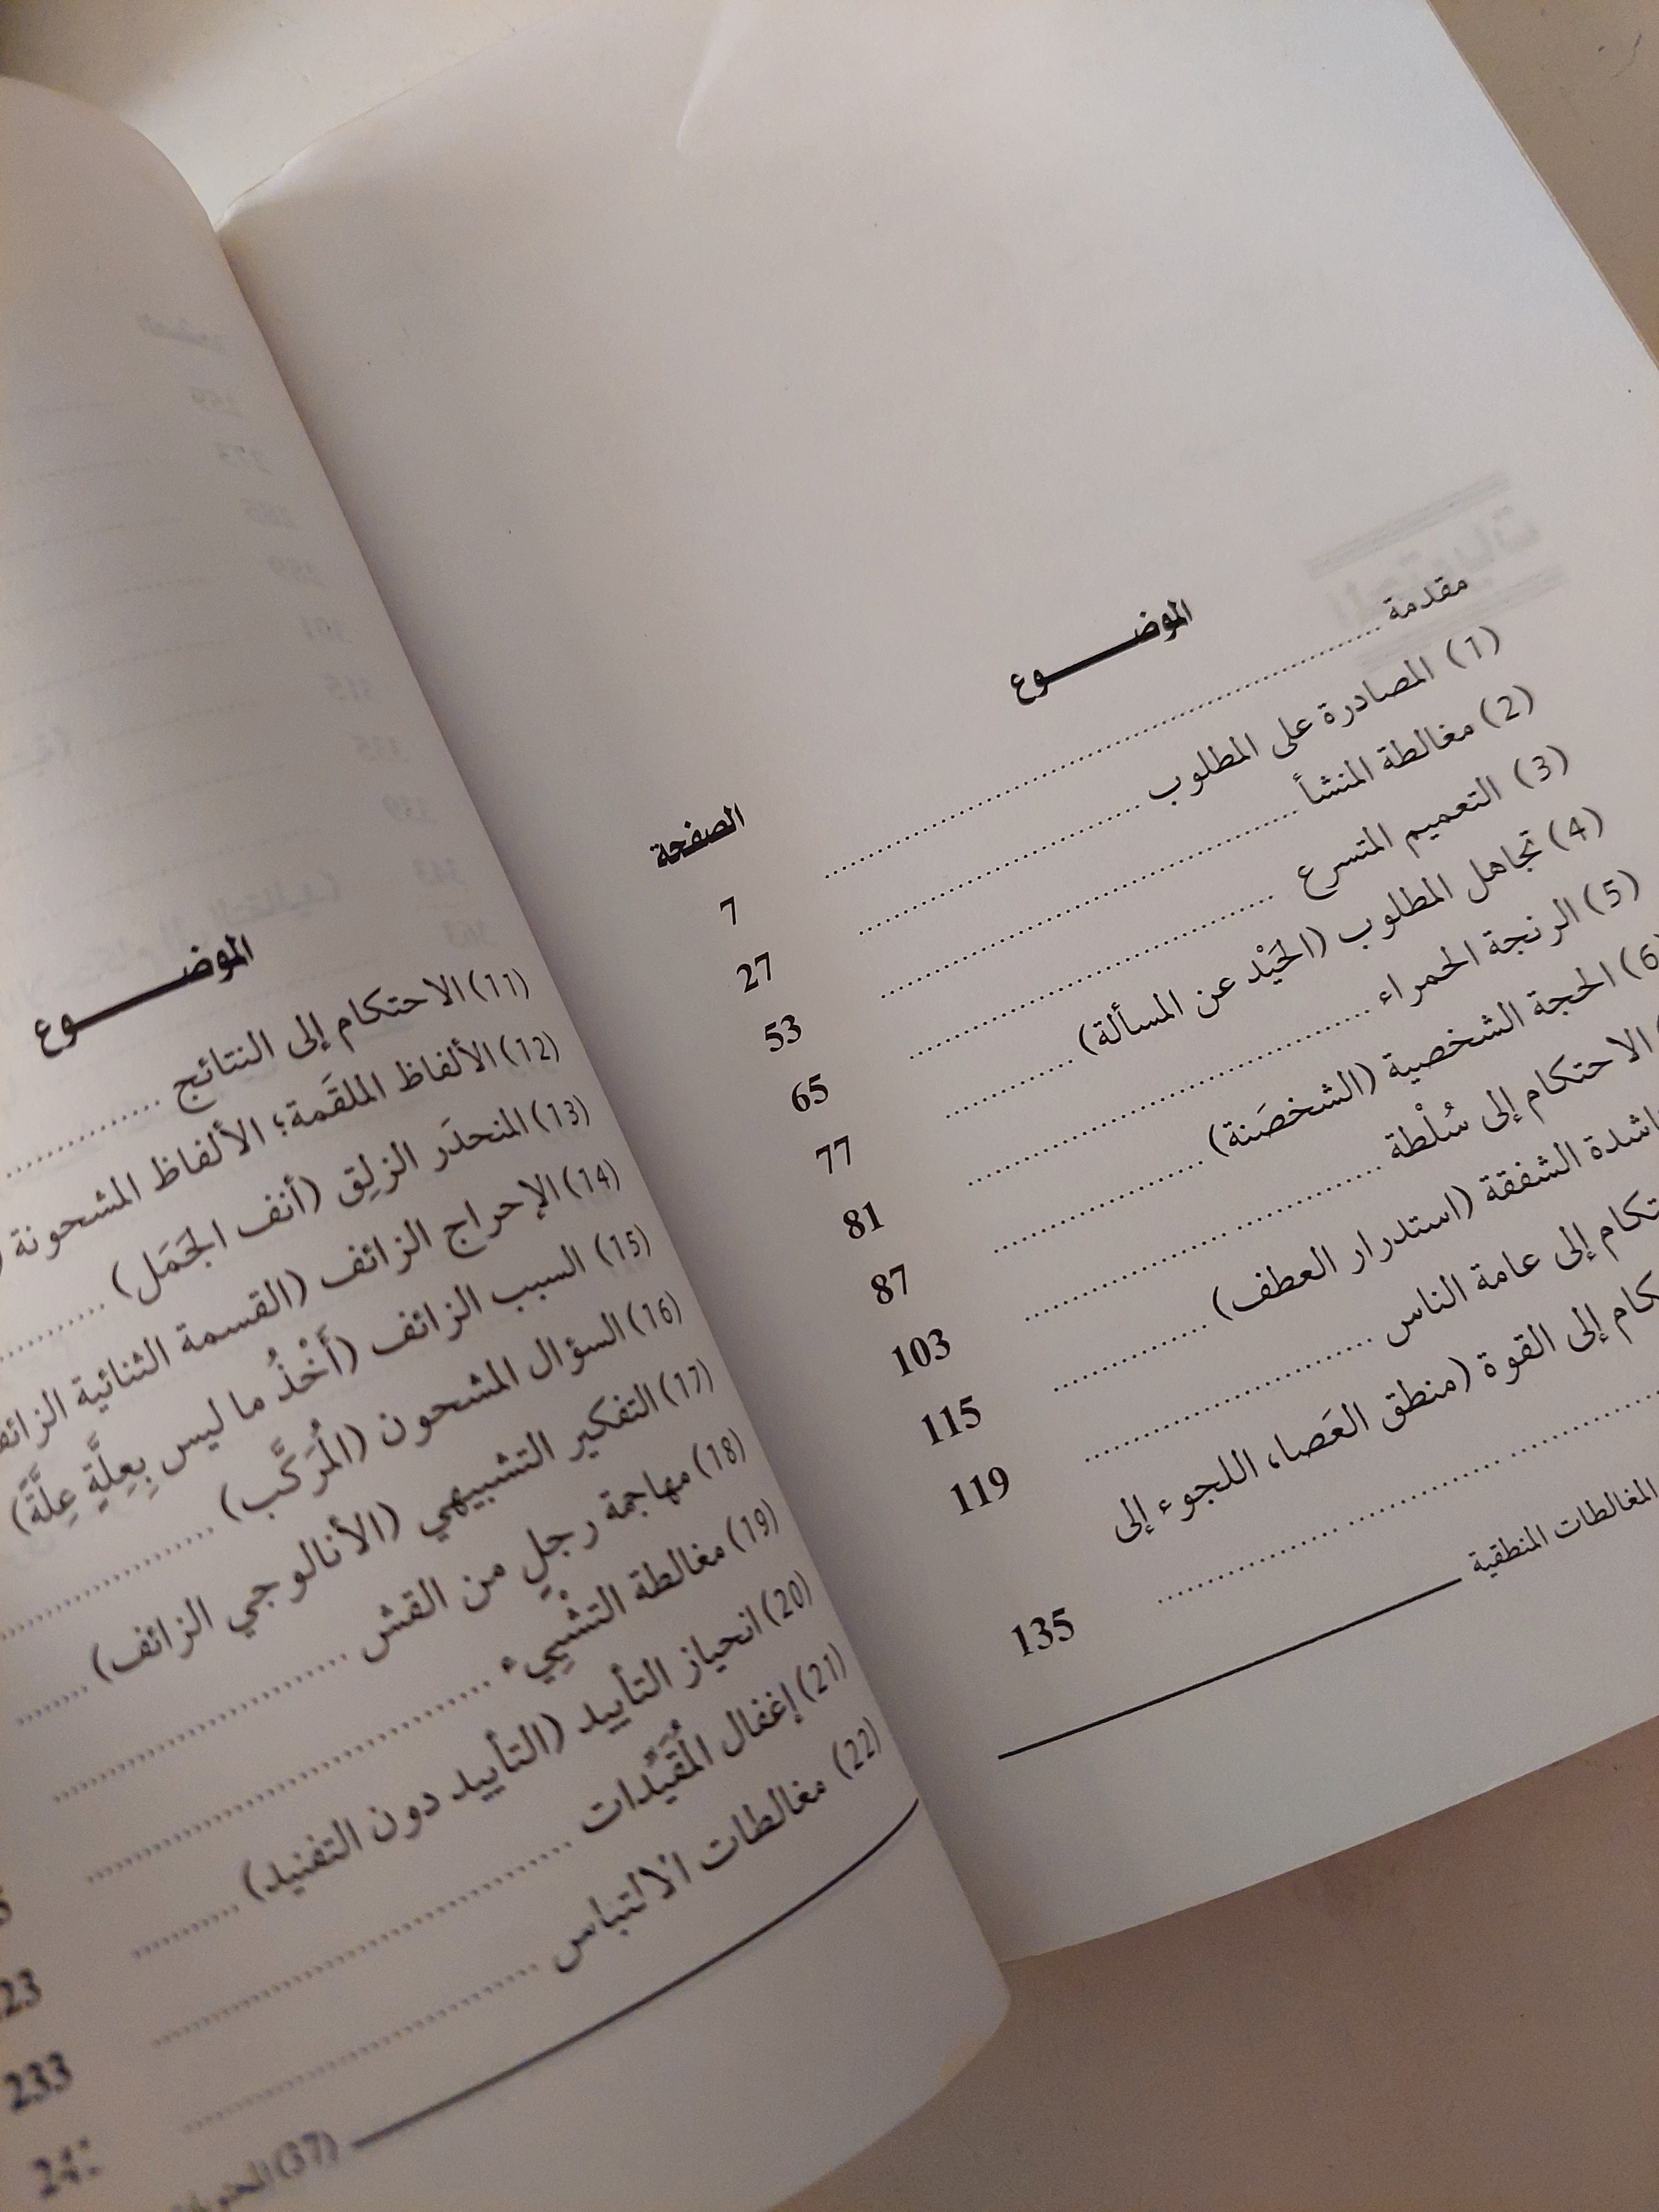 الموضـــــوع
الصفحة
مقدمة ........ 7
(1) المصادرة على المطلوب ........ 27
(2) مغالطة المنشأ ........ 53
(3) التعميم المتسرع ........ 65
(4) تجاهل المطلوب (الحَيْد عن المسألة) ........ 77
(5) الرنجة الحمراء ........ 81
(6) الحجة الشخصية (الشخصَنة) ........ 87
الاحتكام إلى سُلْطة ........ 103
الشفقة (استدرار العطف) ........ 115
إلى عامة الناس ........ 119
إلى القوة (منطق العَصا، اللجوء إلى
........ 135
المغالطات المنطقية
الموضـــــوع
(11) الاحتكام إلى النتائج ........
(12) الألفاظ الملقَمة؛ الألفاظ المشحونة
(13) المنحدَر الزلِق (أنف الجَمَل) ........
(14) الإحراج الزائف (القسمة الثنائية
(15) السبب الزائف (أَخْذُ ما ليس بِعِلَّةٍ عِلَّةً)
(16) السؤال المشحون (المُرَكَّب) ........
(17) التفكير التشبيهي (الأنالوجي الزائف) ........
(18) مهاجمة رجلٍ من القش ........
(19) مغالطة التشْيِيء ........
(20) انحياز التأييد (التأييد دون التفنيد) ........
(21) إغفال المُقَيِّدات ........ 233
(22) مغالطات الالتباس ........